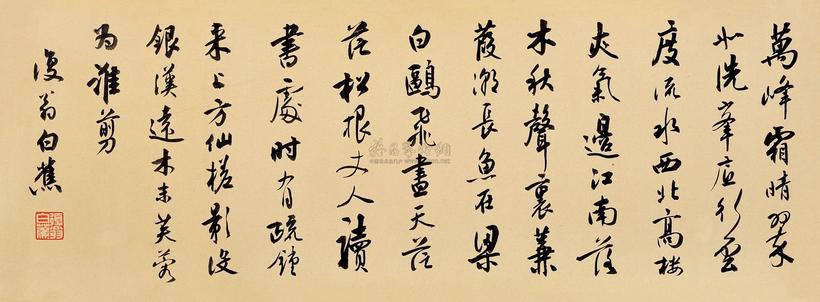 萬峰霜晴翠
如洗峯底行雲
度流水西北高樓
爽氣邊江南落
木秋聲裏蒹
葭潮長魚石梁
白鷗飛盡天茫
茫松根丈人讀
書處時有疏鐘
来上方仙槎影没
銀漢遠木末芙蓉
為誰剪
復翁白蕉